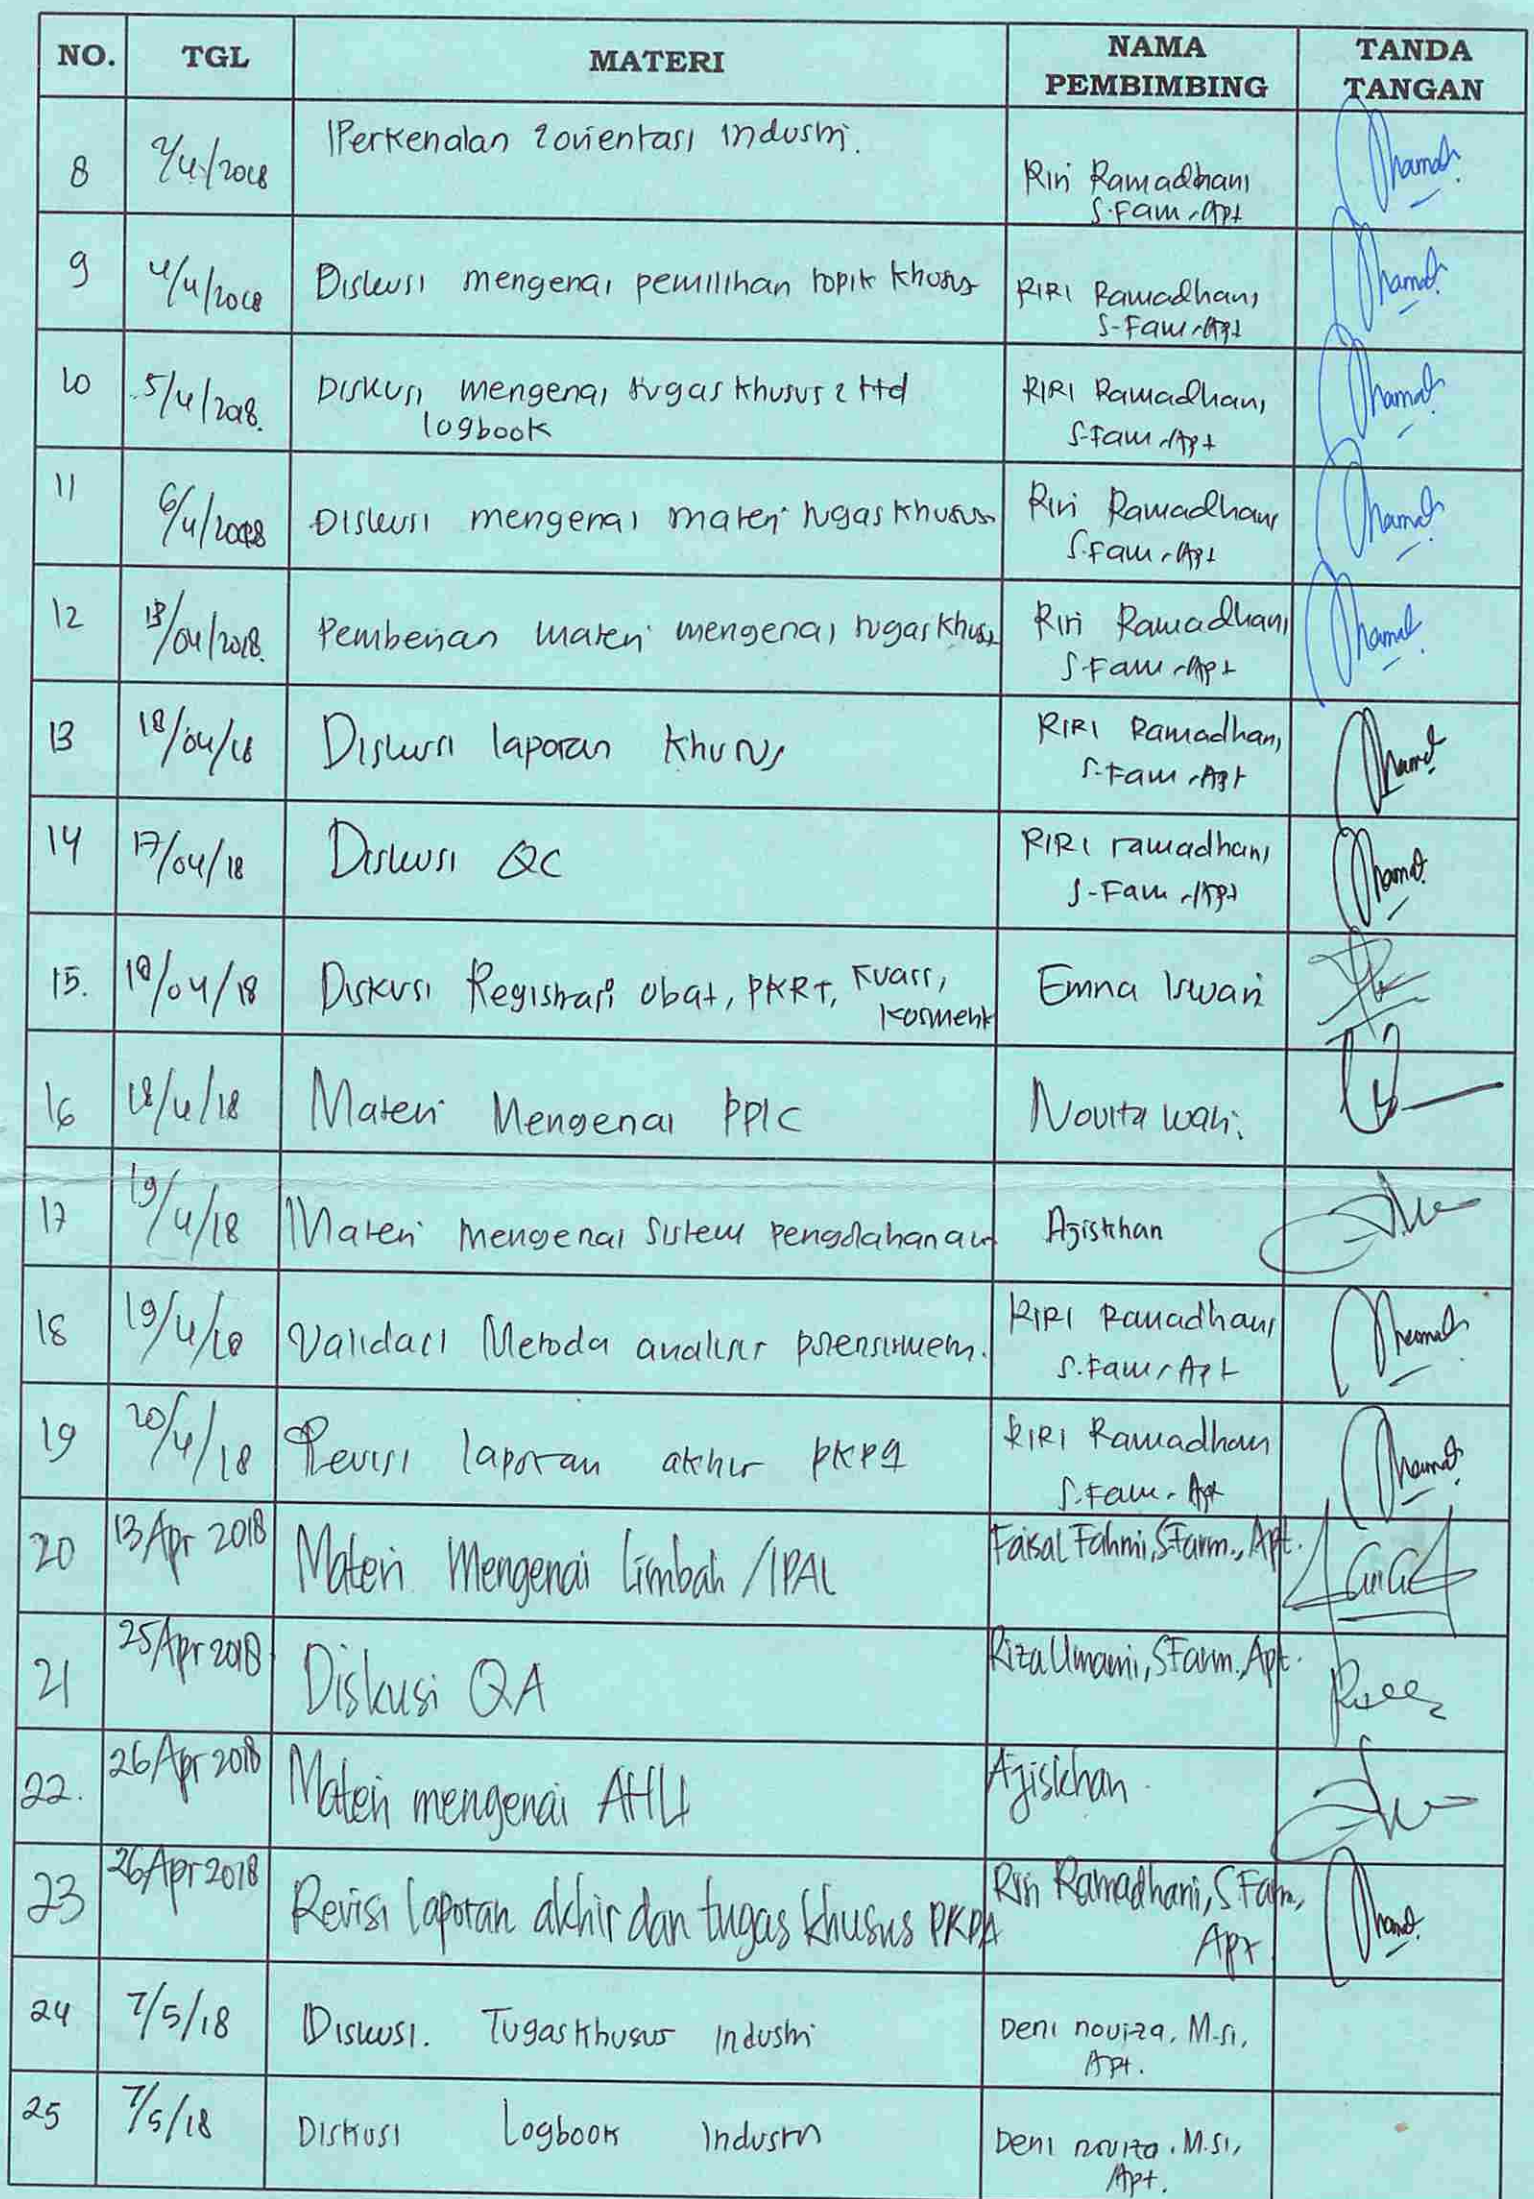 NO. TGL MATERI NAMA PEMBIMBING TANDA TANGAN
8 2/4/2018 Perkenalan & orientasi Industri. Riri Ramadhani
S.Fam, Apt
9 4/4/2018 Diskusi mengenai pemilihan topik khusus RIRI Ramadhani
S.Fam, Apt
10 5/4/2018. Diskusi mengenai tugas khusus & ttd RIRI Ramadhani
logbook S.Fam, Apt
11 6/4/2018 Diskusi mengenai materi tugas khusus Riri Ramadhani
S.Fam, Apt
12 /04/2018. Pemberian materi mengenai tugas khusus Riri Ramadhani
S.Fam, Apt
13 18/04/18 Diskusi laporan khusus RIRI Ramadhani
S.Fam, Apt
14 17/04/18 Diskusi QC RIRI ramadhani
S.Fam, Apt
15. /04/18 Diskusi Registrasi obat, PKRT, Kuasi, Emna Iswari
kosmetik
16 18/4/18 Materi Mengenai PPIC Novita wari.
17 19/4/18 Materi mengenai Sistem pengolahan air Ajiskhan
18 19/4/18 Validasi Metoda analisis RIRI Ramadhani
S.Fam, Apt
19 20/4/18 Revisi laporan akhir PKPA RIRI Ramadhani
S.Fam, Apt
20 13 Apr 2018 Materi Mengenai Limbah /IPAL Faisal Fahmi, S.Farm., Apt.
21 25 Apr 2018 Diskusi QA Riza Umami, S.Farm., Apt.
22. 26 Apr 2018 Materi mengenai AHU Ajiskhan
23 26 Apr 2018 Revisi laporan akhir dan tugas khusus PKPA Riri Ramadhani, S Farm,
Apt
24 7/5/18 Diskusi. Tugas khusus Industri Deni noviza, M.Si,
Apt.
25 7/5/18 Diskusi Logbook Industri Deni noviza, M.Si,
Apt.